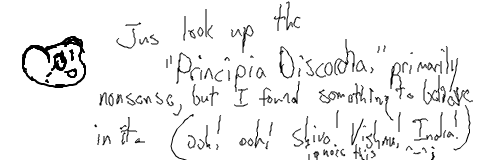 Jus look up the
"Principia Discordia," primarily
nonsense, but I found something to believe
in it. (ooh! ooh! Shiva! Vishnu! India!)
ignore this ^-^;